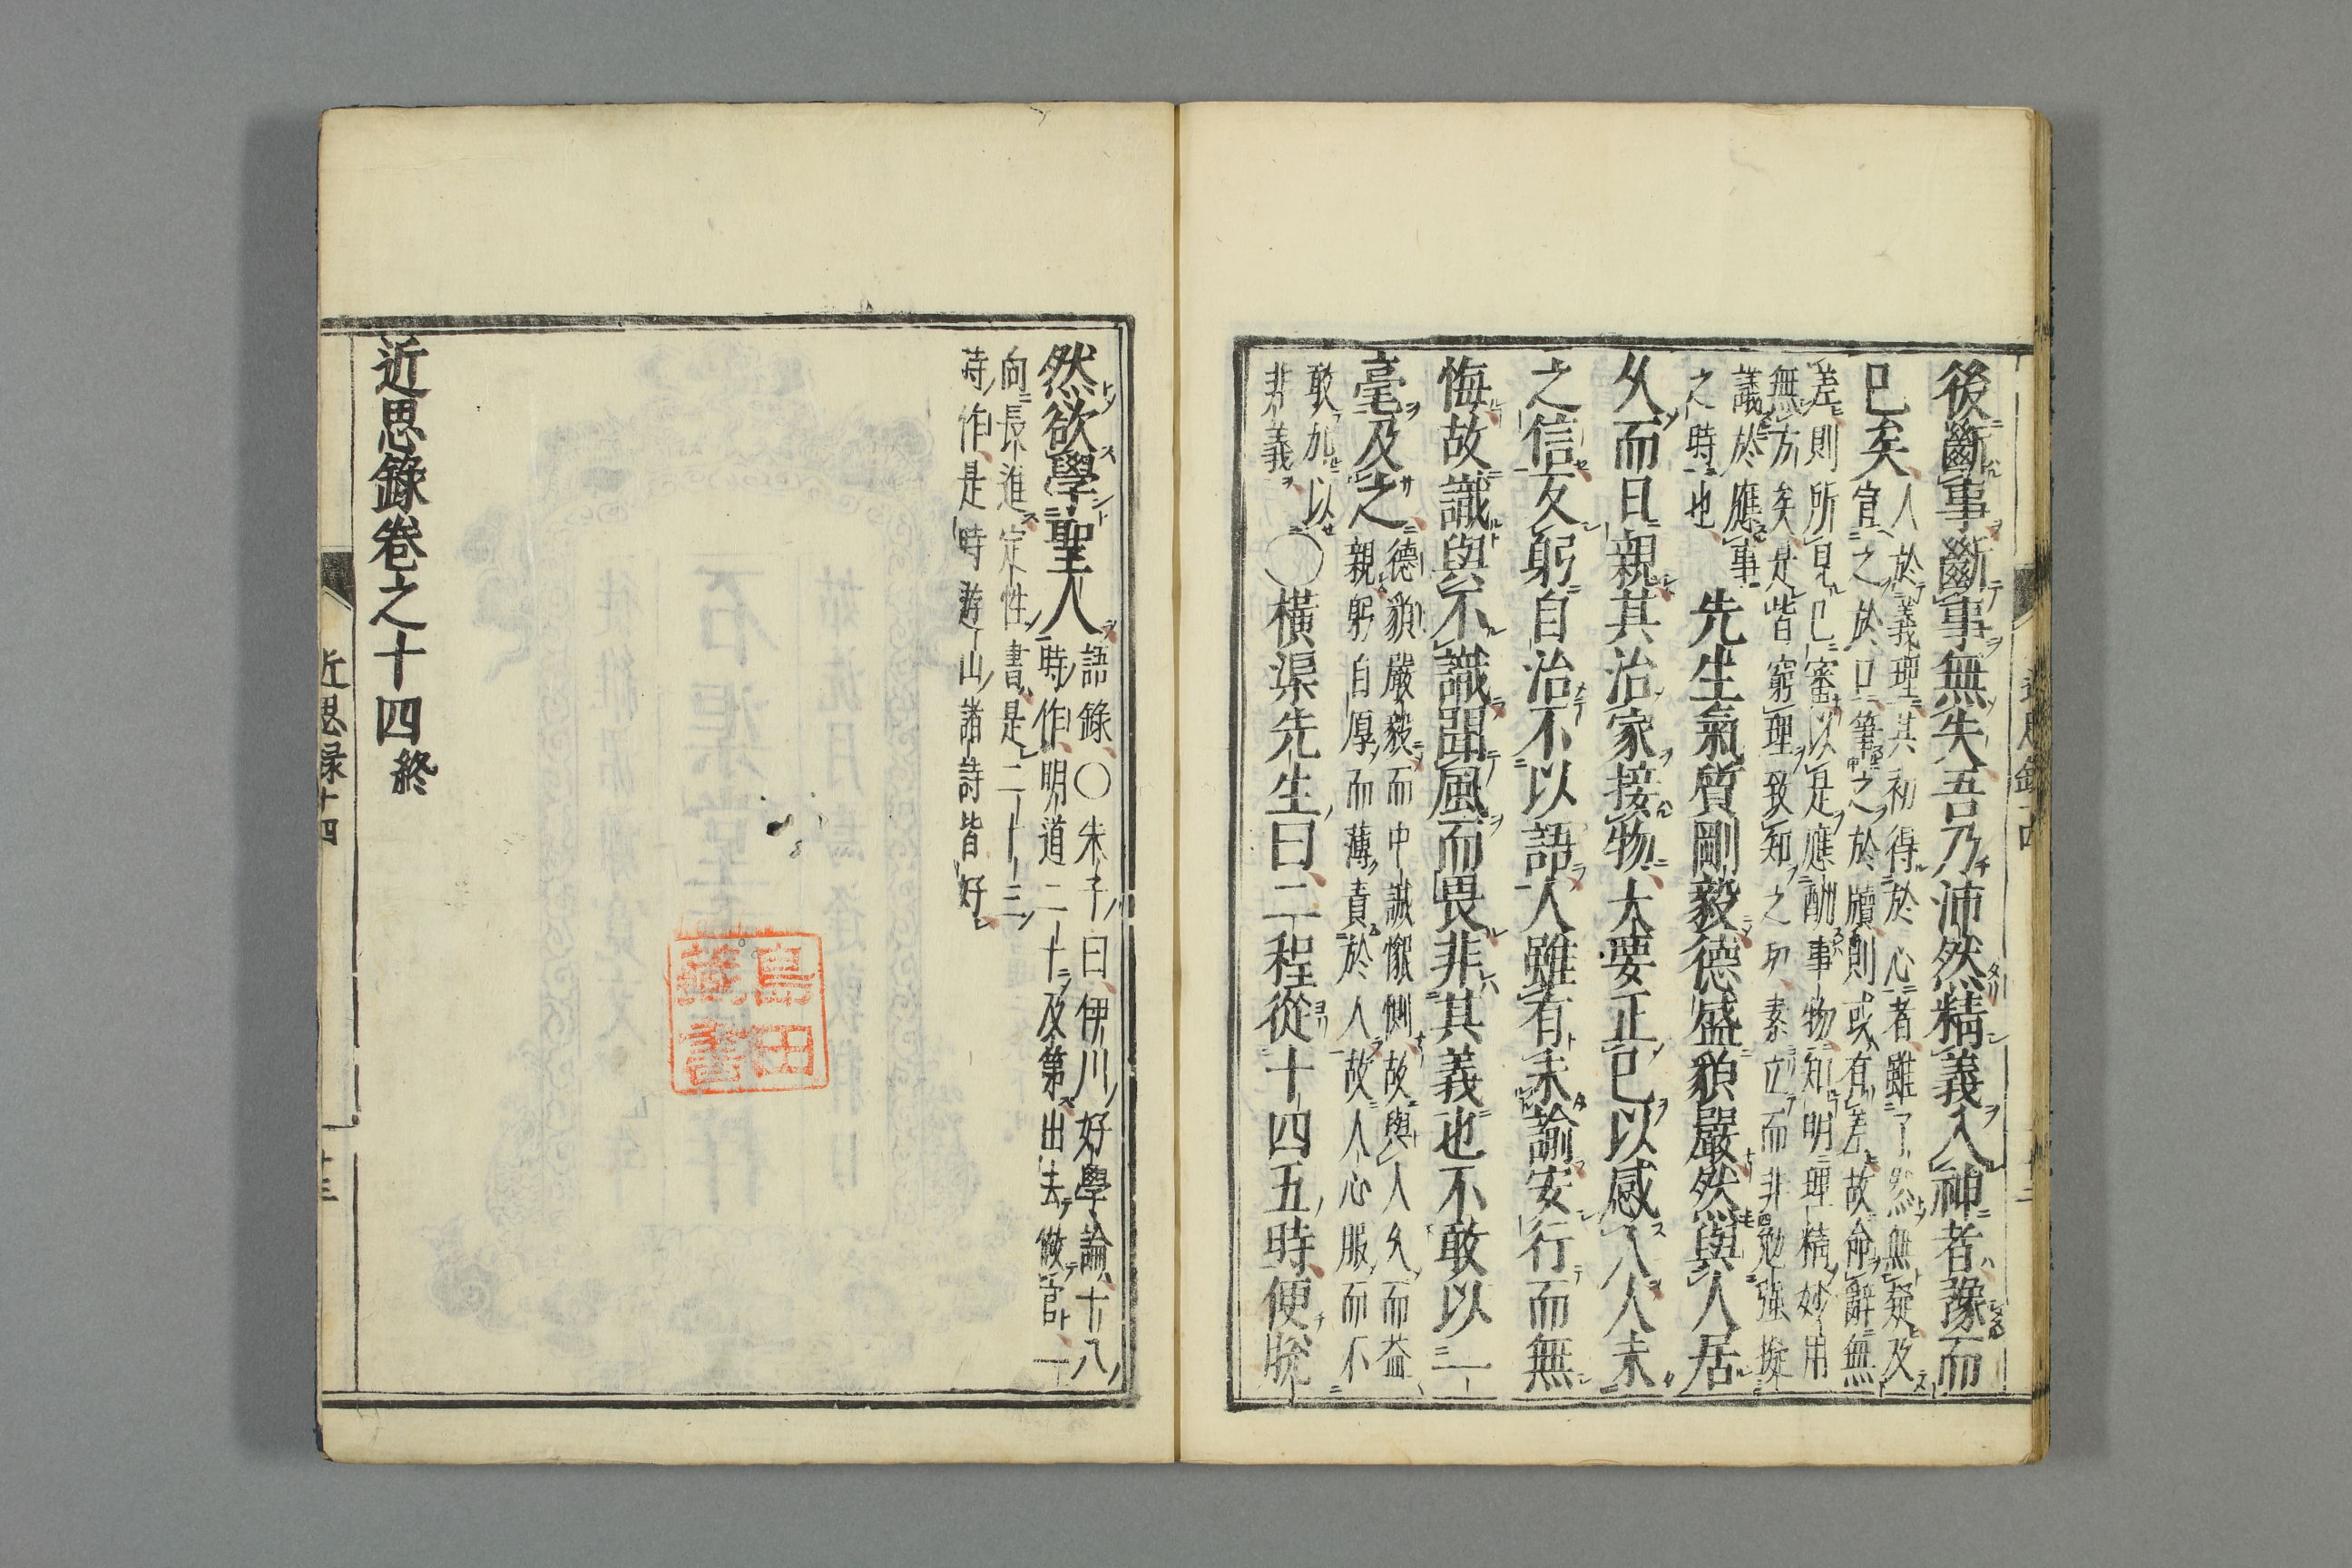 後斷事斷事無失吾乃沛然精義入神者豫而
已矣
人於義理其初得於心者雖了然無疑及
宜之於口筆之於牘則或有差故命辭無
差則所見已審以是應酬事物知明理精妙用
無方矣是皆窮理致知之功素立而非勉強擬
議於應事
之時也
先生氣質剛毅德盛貌嚴然與人居
久而日親其治家接物大要正己以感人人未
之信反躬自治不以語人雖有未諭安行而無
悔故識與不識聞風而畏非其義也不敢以一
毫及之
德貌嚴毅而中誠懈惻故與人久而益
親躬自厚而薄責於人故人心服而不
敢加以
非義
〇橫渠先生曰二程從十四五時便脫
然欲學聖人
語錄〇朱子曰伊川好學論十八
時作明道二十及第出去做官一
向長進定性書是二十三
時作是時游山諸詩皆好
島田
藏書
近思錄卷之十四終
近思录十四
十三